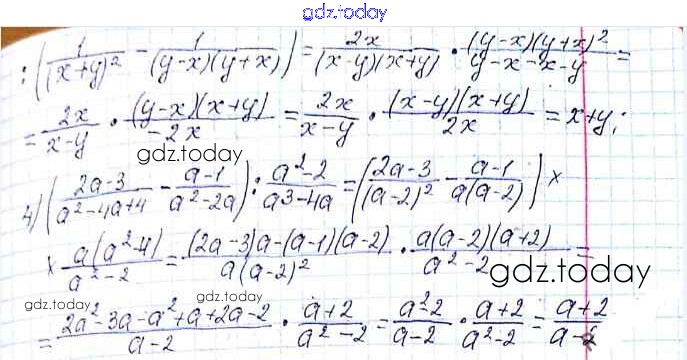 gdz.today
: (1/(x+y)² - 1/((y-x)(y+x))) = 2x/((x-y)(x+y)) · (y-x)(y+x)²/(y-x-x-y) =
= 2x/(x-y) · (y-x)(x+y)/(-2x) = 2x/(x-y) · (x-y)(x+y)/2x = x+y;
gdz.today
4) ((2a-3)/(a²-4a+4) - (a-1)/(a²-2a)) : (a²-2)/(a³-4a) = ((2a-3)/(a-2)² - (a-1)/(a(a-2))) ×
× a(a²-4)/(a²-2) = ((2a-3)a-(a-1)(a-2))/(a(a-2)²) · a(a-2)(a+2)/(a²-2) =
gdz.today
gdz.today
gdz.today
= (2a²-3a-a²+a+2a-2)/(a-2) · (a+2)/(a²-2) = (a²-2)/(a-2) · (a+2)/(a²-2) = (a+2)/(a-2)